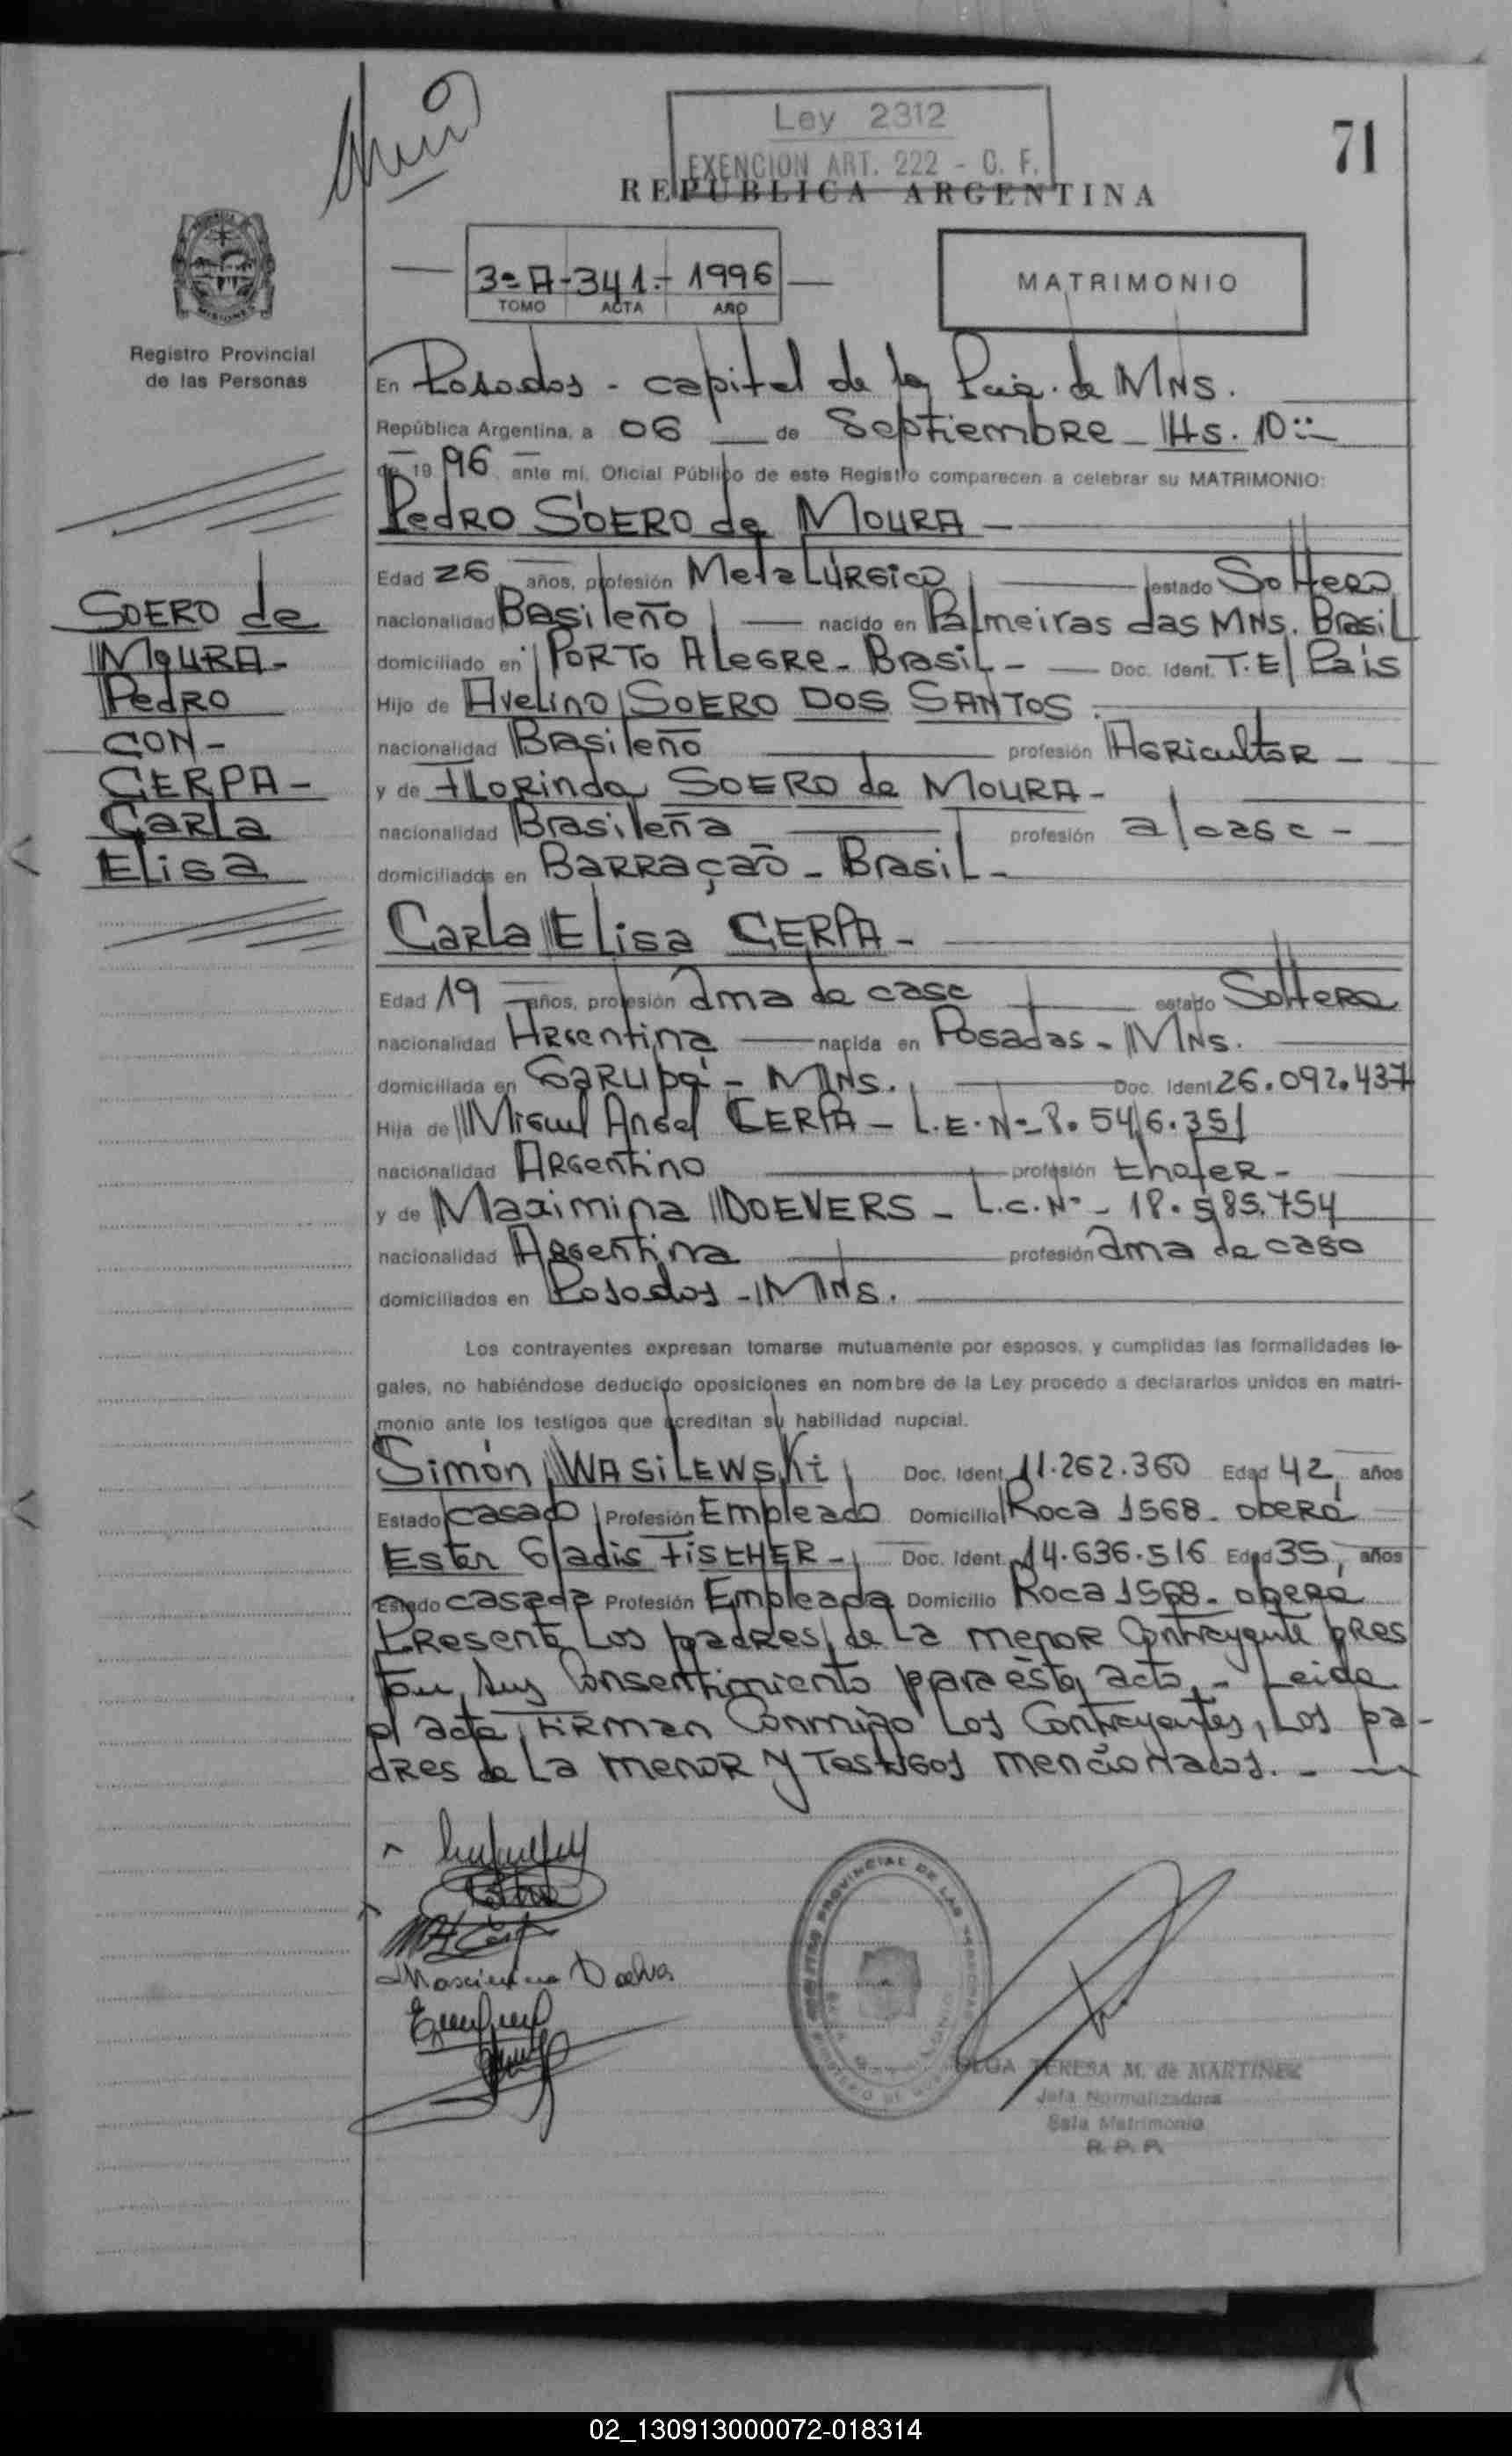 Ley 2312
EXENCION ART. 222 - C. F.
71
REPUBLICA ARGENTINA
3º A - 341 - 1996
TOMO ACTA AÑO
MATRIMONIO
Registro Provincial
de las Personas
En Posadas - capital de la de MNS.
República Argentina, a 06 de Septiembre - Hs. 10
de 19 96 ante mí, Oficial Público de este Registro comparecen a celebrar su MATRIMONIO:
Pedro SOERO de MOURA -
Edad 26 años, profesión Metalúrgico estado Soltero
nacionalidad Brasileño nacido en Palmeiras das MNs. Brasil
domiciliado en Porto Alegre - Brasil - Doc. Ident. T.E/ País
Hijo de Avelino SOERO DOS SANTOS.
nacionalidad Brasileño profesión Agricultor -
y de Florinda SOERO de MOURA -
nacionalidad Brasileña profesión a/casa -
domiciliados en Barração - Brasil -
SOERO de
MOURA -
Pedro
CON -
CERPA -
Carla
Elisa
Carla Elisa CERPA -
Edad 19 años, profesión ama de casa estado Soltera
nacionalidad Argentina nacida en Posadas - MNs.
domiciliada en Garupá - MNs. Doc. Ident. 26.092.437
Hija de Miguel Angel CERPA - L.E. Nº 8.546.351
nacionalidad Argentino profesión chofer -
y de Maximina DOEVERS - L.C. Nº - 18.585.754
nacionalidad Argentina profesión ama de casa
domiciliados en Posadas - MNs.
Los contrayentes expresan tomarse mutuamente por esposos, y cumplidas las formalidades le-
gales, no habiéndose deducido oposiciones en nombre de la Ley procedo a declararlos unidos en matri-
monio ante los testigos que acreditan su habilidad nupcial.
Simón WASILEWSKI Doc. Ident. 11.262.360 Edad 42 años
Estado casado Profesión Empleado Domicilio Roca 1568 - Oberá
Ester Gladis FISCHER - Doc. Ident. 14.636.516 Edad 35 años
Estado casada Profesión Empleada Domicilio Roca 1568 - Oberá
Presente los padres de la menor contrayente pres
tan sus consentimiento para éste acto. - Leida
el acta, FIRMAN conmigo los contrayentes, los pa-
dres de la menor y testigos mencionados. -
Maximina Doevers
REGISTRO PROVINCIAL DE LAS PERSONAS
OLGA TERESA M. de MARTINEZ
Jefa Normalizadora
Sala Matrimonio
R. P. P.
02_130913000072-018314